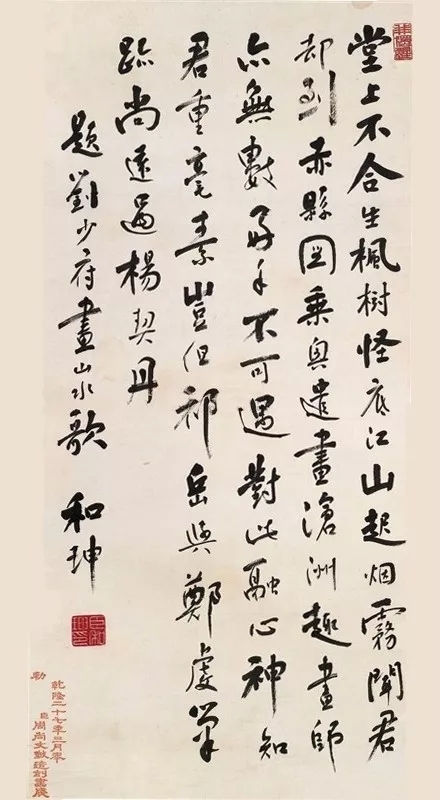 堂上不合生楓樹怪底江山起烟霧聞君
却到赤縣図乗興遣畫滄洲趣畫師
亦無數好手不可遇對此融心神知
君重毫素豈但祁岳與鄭虔筆
跡尚遠過楊契丹
題劉少府畫山水歌 和珅
乾隆二十七年三月奉
勅
臣周尚文